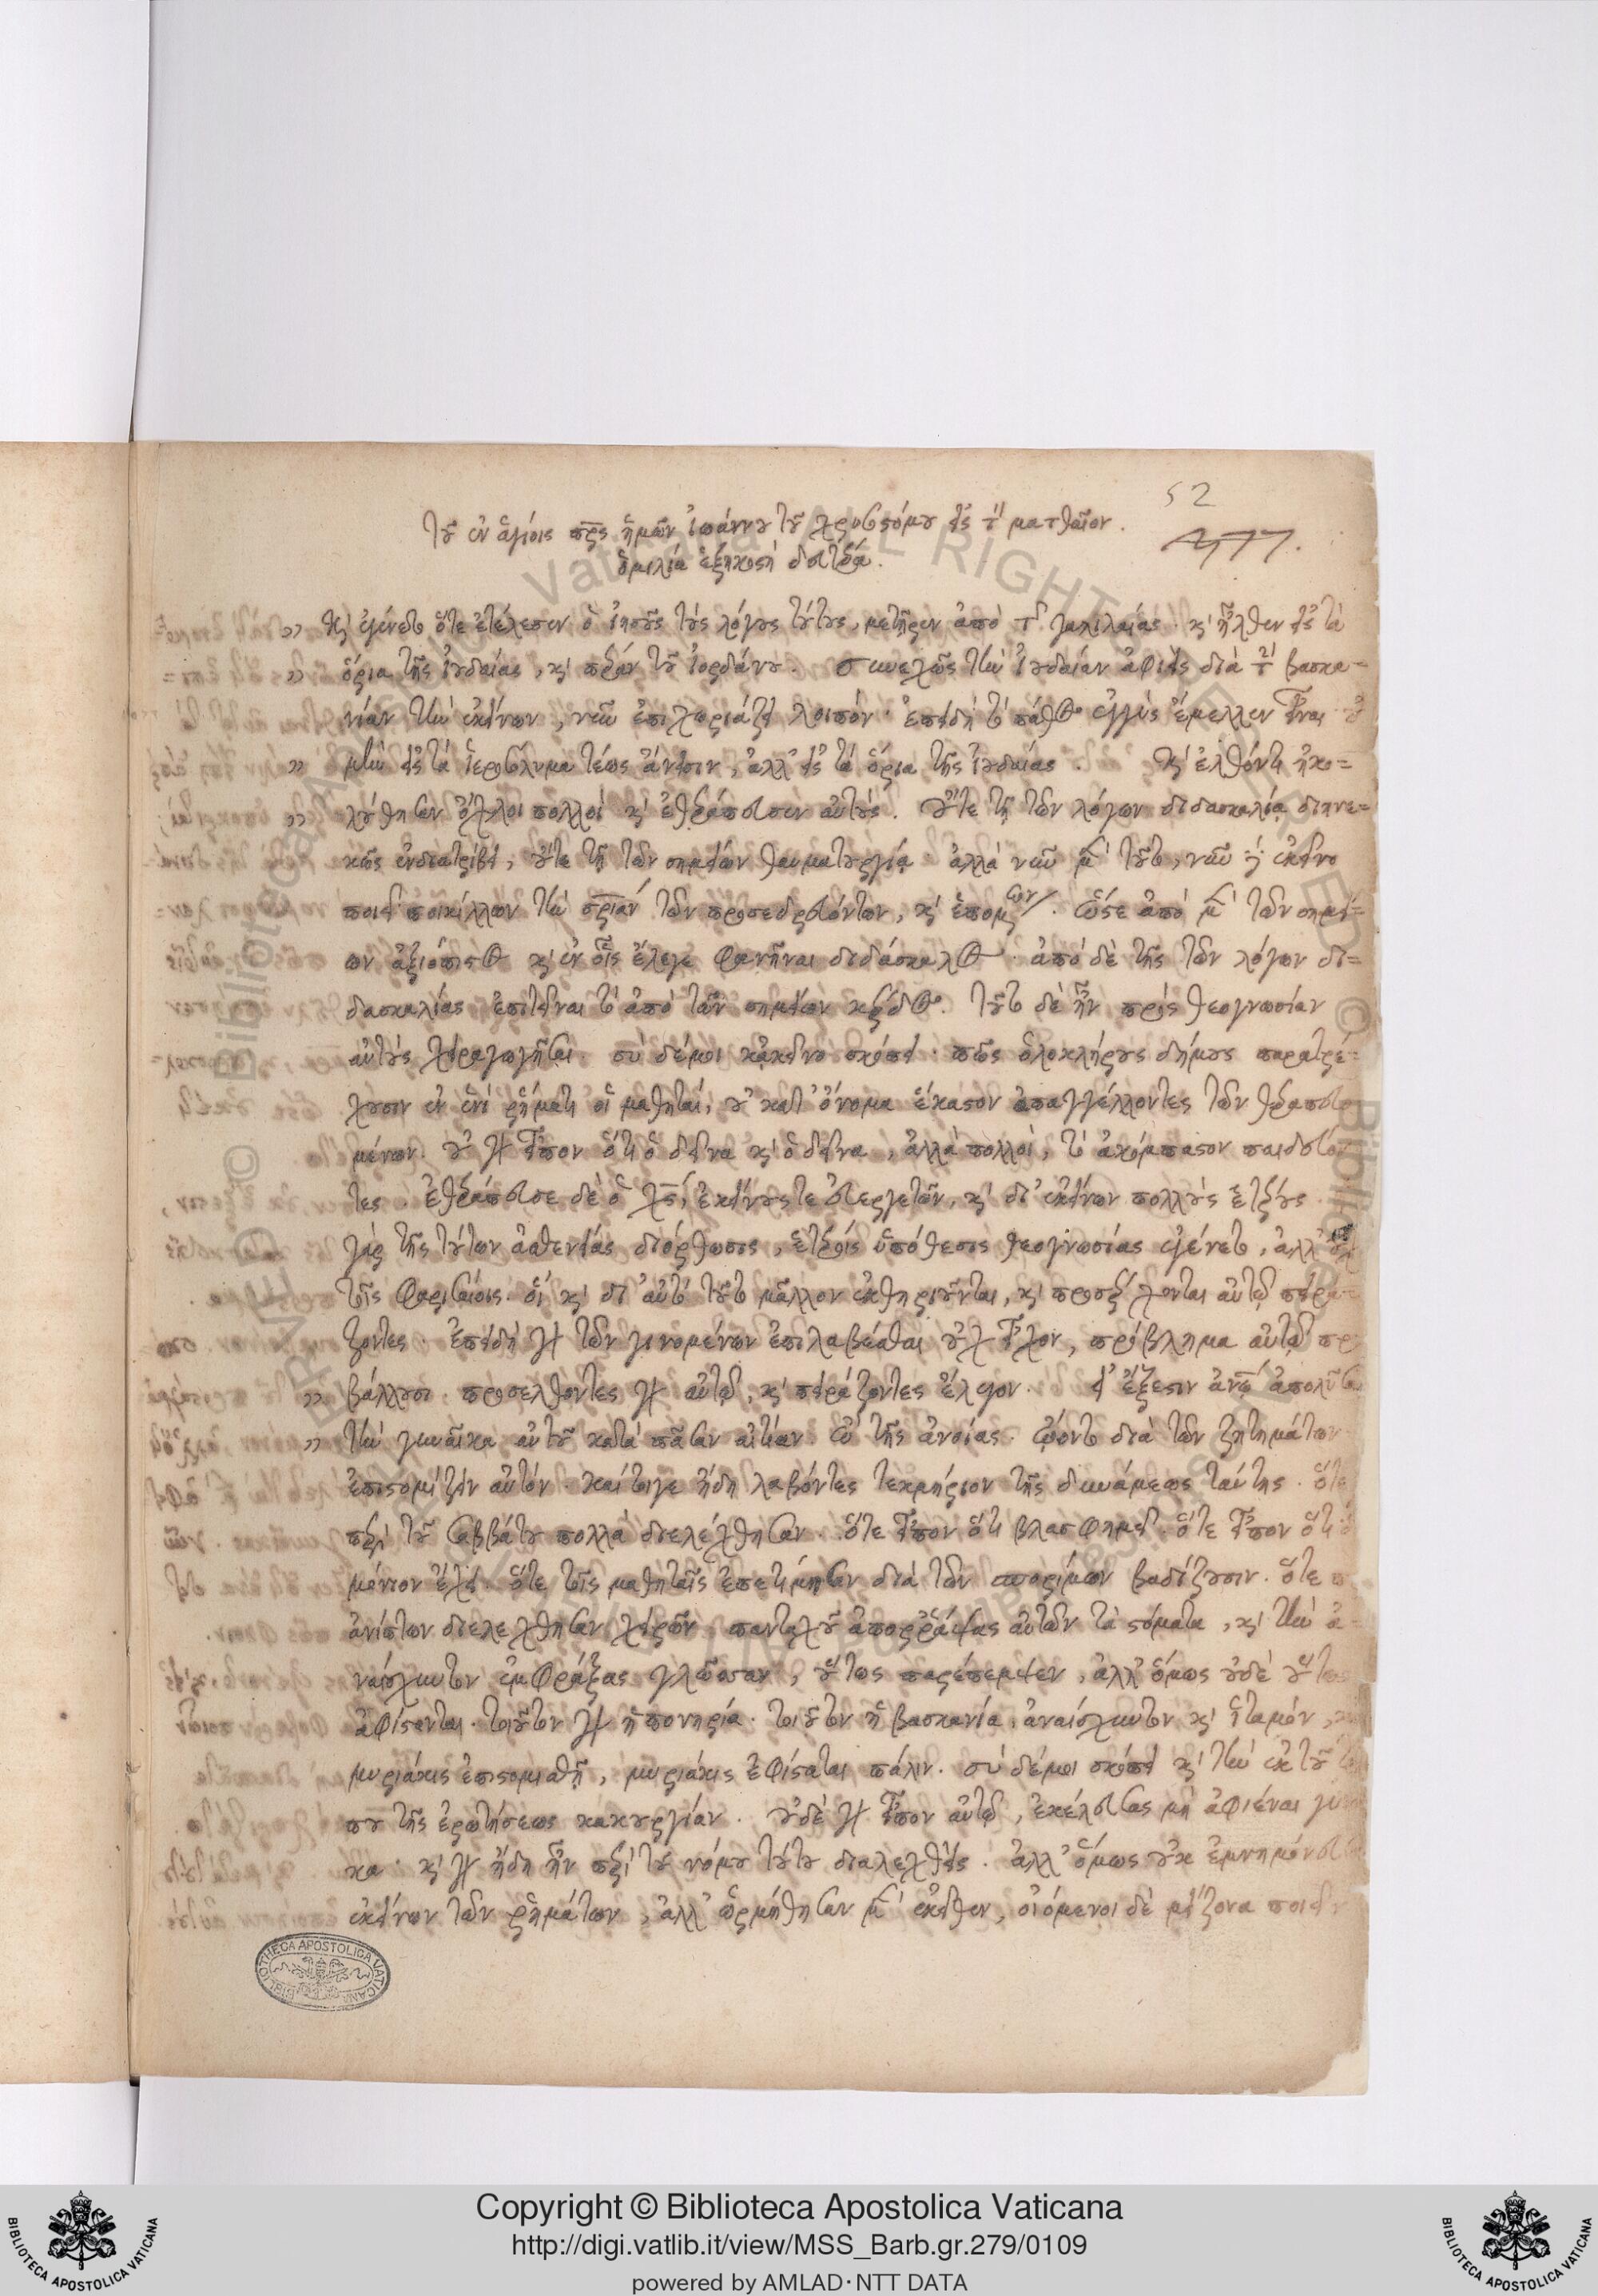 52
Τοῦ ἐν ἁγίοις πρς ἡμῶν ἰωάννου τοῦ χρυσοστόμου εἰς τὸ ματθαῖον.
ὁμιλία ἑξηκοστὴ δευτέρα.
„ Κὶ ἐγένετο ὅτε ἐτέλεσεν ὁ ἰησοῦς τοὺς λόγους τούτους, μετῆρεν ἀπὸ τ γαλιλαίας. κὶ ἦλθεν εἰς τὰ
„ ὅρια τῆς ἰουδαίας, κὶ πέραν τοῦ ἰορδάνου. συνεχῶς τὴν ἰουδαίαν ἀφιεὶς διὰ τὴν βασκα=
νίαν τὴν ἐκείνων, νῦν ἐπιχωριάζει λοιπόν. ἐπειδὴ τὸ πάθος ἐγγὺς ἔμελλεν εἶναι οὐ
„ μὴν εἰς τὰ ἱεροσόλυμα τέως ἄνεισιν, ἀλλ' εἰς τὰ ὅρια τῆς ἰουδαίας. Κὶ ἐλθόντι ἠκο=
„ λούθησαν ὄχλοι πολλοί κὶ ἐθεράπευσεν αὐτούς. οὔτε τῇ τῶν λόγων διδασκαλίᾳ διηνε=
κῶς ἐνδιατρίβει, οὔτε τῇ τῶν σημείων θαυματουργίᾳ ἀλλὰ νῦν μὲν τοῦτο, νῦν δὲ ἐκεῖνο
ποιεῖ ποικίλλων τὴν σρίαν τῶν προσεδρευόντων, κὶ ἑπομένων. ὥστε ἀπὸ μὲν τῶν σημεί=
ων ἀξιόπιστος κὶ ἐν οἷς ἔλεγε φανῆναι διδάσκαλος. ἀπὸ δὲ τῆς τῶν λόγων δι=
δασκαλίας ἐπιτεῖναι τὸ ἀπὸ τῶν σημείων κέρδος. τοῦτο δὲ ἦν πρὸς θεογνωσίαν
αὐτοὺς χειραγωγῆσαι. σὺ δέ μοι κἀκεῖνο σκόπει. πῶς ὁλοκλήρους δήμους παρατρέ=
χουσιν ἐν ἑνὶ ῥήματι οἱ μαθηταί, οὐ κατ' ὄνομα ἕκαστον ἀπαγγέλλοντες τῶν θεραπευο
μένων. οὐ γὰρ εἶπον ὅτι ὁ δεῖνα κὶ ὁ δεῖνα, ἀλλὰ πολλοί, τὸ ἀκόμπαστον παιδεύον
τες. ἐθεράπευσε δὲ ὁ χς, ἐκείνους τε εὐεργετῶν, κὶ δι' ἐκείνων πολλοὺς ἑτέρους.
γὰρ τῆς τούτων ἀσθενείας διόρθωσις, ἑτέροις ὑπόθεσις θεογνωσίας ἐγένετο, ἀλλ' οὐ
τοῖς φαρισαίοις. οἳ κὶ δι' αὐτὸ τοῦτο μᾶλλον ἐκθηριοῦνται, κὶ προσέρχονται αὐτῷ πειρά=
ζοντες. ἐπειδὴ γὰρ τῶν γινομένων ἐπιλαβέσθαι οὐχ εἶχον, πρόβλημα αὐτῷ προ
„ βάλλουσι. προσελθόντες γὰρ αὐτῷ, κὶ πειράζοντες ἔλεγον. εἰ ἔξεστιν ἀνῷ ἀπολῦσαι
„ τὴν γυναῖκα αὐτοῦ κατὰ πᾶσαν αἰτίαν. ὢ τῆς ἀνοίας. ᾤοντο διὰ τῶν ζητημάτων
ἐπιστομίζειν αὐτόν. καίτοιγε ἤδη λαβόντες τεκμήριον τῆς δυνάμεως ταύτης. ὅτε
περὶ τοῦ σαββάτου πολλὰ διελέχθησαν. ὅτε εἶπον ὅτι βλασφημεῖ. ὅτε εἶπον ὅτι
μόνιον ἔχει. ὅτε τοῖς μαθηταῖς ἐπετίμησαν διὰ τῶν σπορίμων βαδίζουσιν. ὅτε π
ἀνίπτων διελέχθησαν χειρῶν πανταχοῦ ἀπορράψας αὐτῶν τὰ στόματα, κὶ τὴν ἀ=
ναίσχυντον ἐμφράξας γλῶσσαν, οὕτως παρέπεμψεν, ἀλλ' ὅμως οὐδὲ οὕτως
ἀφίστανται. τοιοῦτον γὰρ ἡ πονηρία. τοιοῦτον ἡ βασκανία, ἀναίσχυντον κὶ ἰταμόν,
μυριάκις ἐπιστομισθῇ, μυριάκις ἐφίσταται πάλιν. σὺ δέ μοι σκόπει κὶ τὴν ἐκ τοῦ τρ
που τῆς ἐρωτήσεως κακουργίαν. οὐδὲ γὰρ εἶπον αὐτῷ, ἐκέλευσας μὴ ἀφιέναι γυναῖ
κα. κὶ γὰρ ἤδη ἦν περὶ τοῦ νόμου τούτου διαλεχθείς. ἀλλ' ὅμως οὐκ ἐμνημόνευσαν
ἐκείνων τῶν ῥημάτων, ἀλλ' ὡρμήθησαν μὲν ἐκεῖθεν, οἰόμενοι δὲ μείζονα ποιεῖν
BIBLIOTHECA APOSTOLICA VATICANA
Copyright © Biblioteca Apostolica Vaticana
http://digi.vatlib.it/view/MSS_Barb.gr.279/0109
powered by AMLAD·NTT DATA
BIBLIOTECA APOSTOLICA VATICANA
BIBLIOTECA APOSTOLICA VATICANA